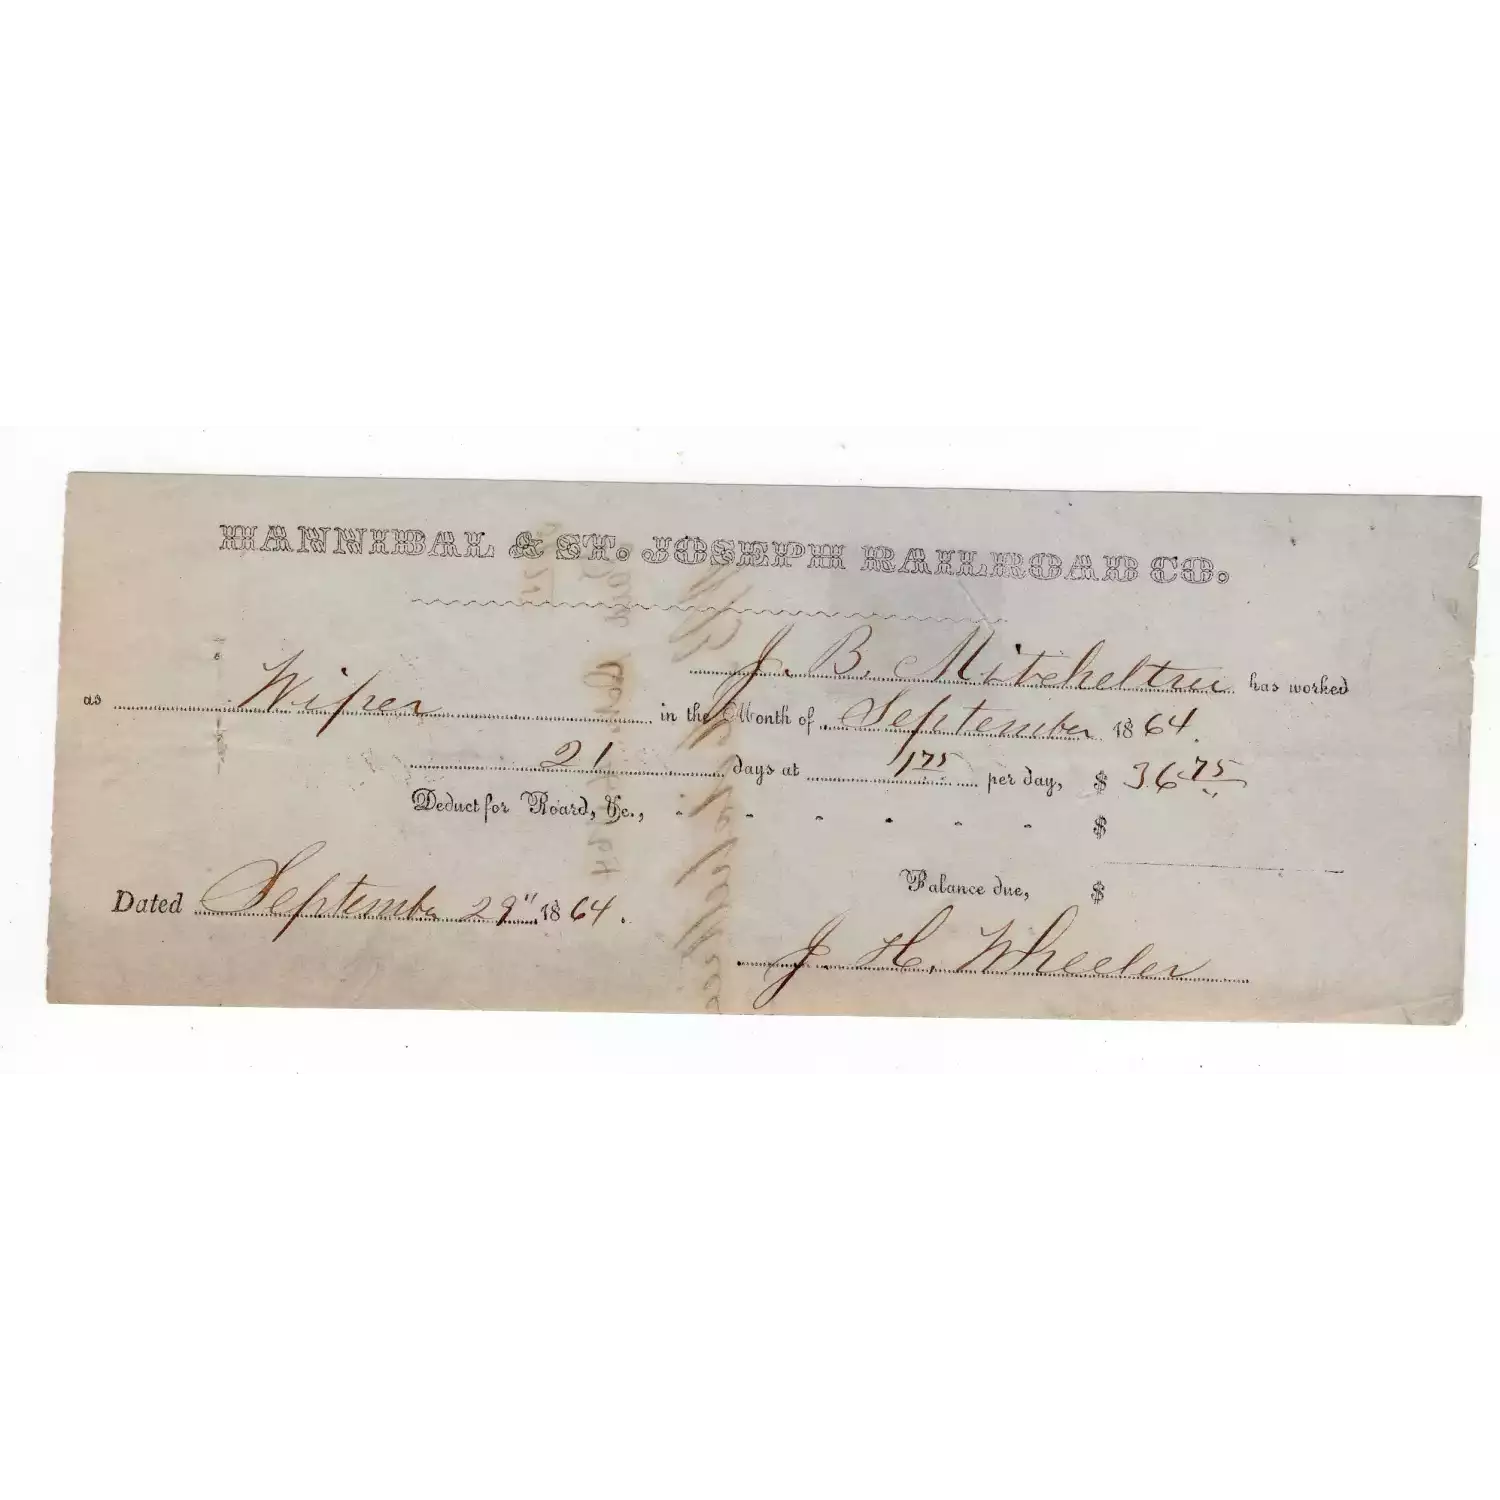 HANNIBAL & ST. JOSEPH RAILROAD CO.
J. B. Mitcheltree has worked
as Wiper in the Month of September 1864.
21 days at 1 75 per day, $ 36 75
Deduct for Board, &c., - - - - - - $
Balance due, $
Dated September 29" 1864.
J. H. Wheeler